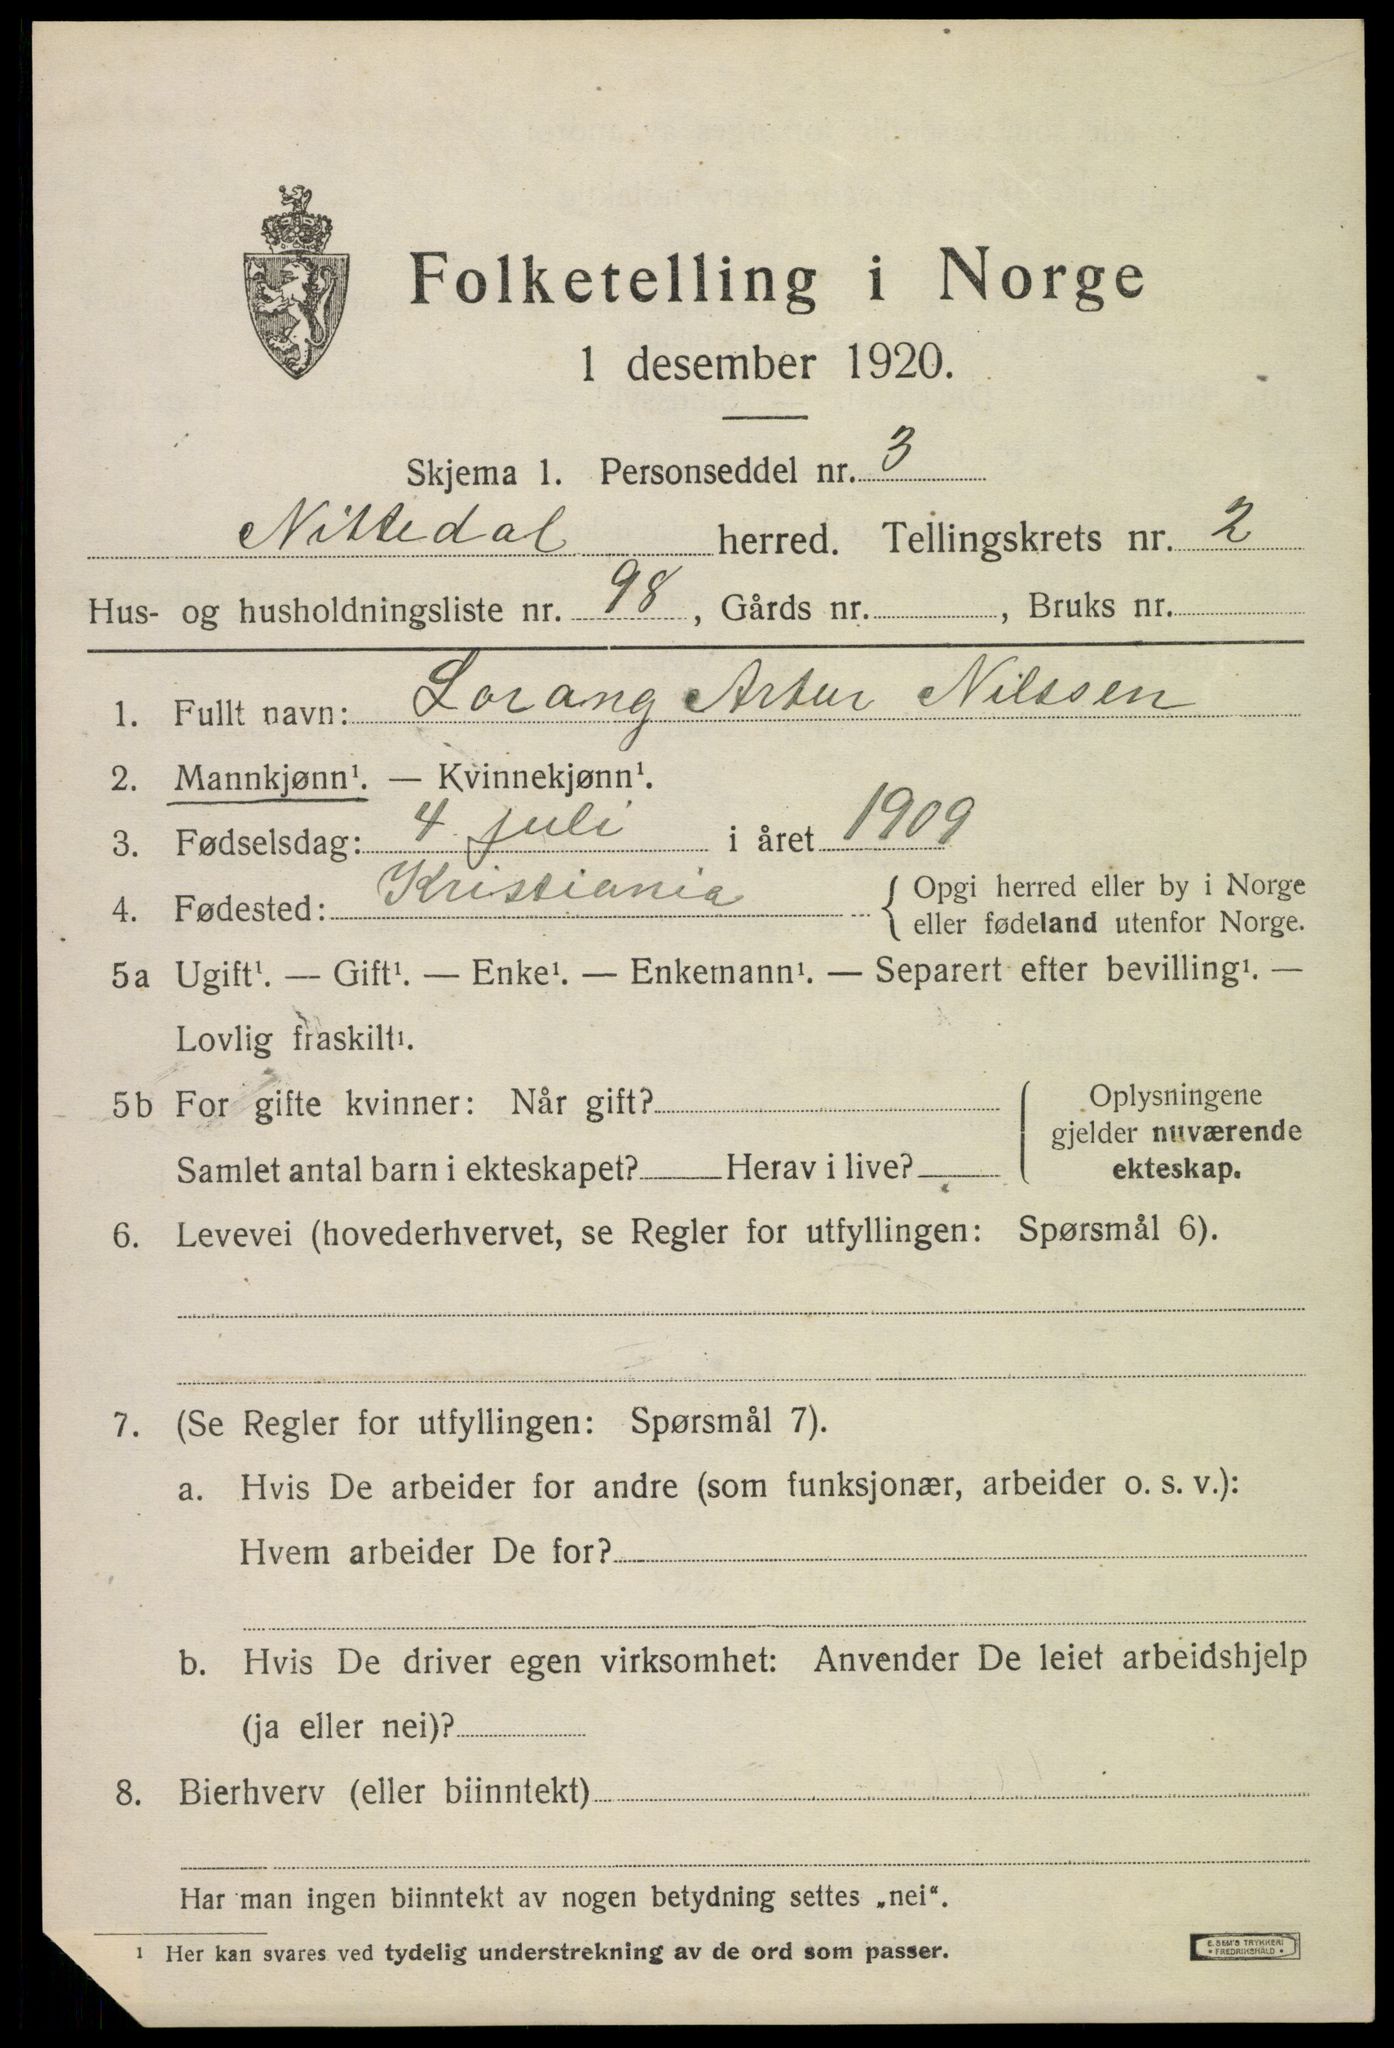 Folketelling i Norge
1 desember 1920.
Skjema 1. Personseddel nr. 3
Nittedal herred. Tellingskrets nr. 2
Hus- og husholdningsliste nr. 98, Gårds nr. , Bruks nr.
1. Fullt navn: Lorang Artur Nilssen
2. Mannkjønn¹. — Kvinnekjønn¹.
3. Fødselsdag: 4 juli i året 1909
4. Fødested: Kristiania { Opgi herred eller by i Norge
eller fødeland utenfor Norge.
5a Ugift¹. — Gift¹. — Enke¹. — Enkemann¹. — Separert efter bevilling¹. —
Lovlig fraskilt¹.
5b For gifte kvinner: Når gift?
Samlet antal barn i ekteskapet? Herav i live?
Oplysningene
gjelder nuværende
ekteskap.
6. Levevei (hovederhvervet, se Regler for utfyllingen: Spørsmål 6).
7. (Se Regler for utfyllingen: Spørsmål 7).
a. Hvis De arbeider for andre (som funksjonær, arbeider o. s. v.):
Hvem arbeider De for?
b. Hvis De driver egen virksomhet: Anvender De leiet arbeidshjelp
(ja eller nei)?
8. Bierhverv (eller biinntekt)
Har man ingen biinntekt av nogen betydning settes „nei“.
¹ Her kan svares ved tydelig understrekning av de ord som passer.
E. SEM'S TRYKKERI
• FREDRIKSHALD •